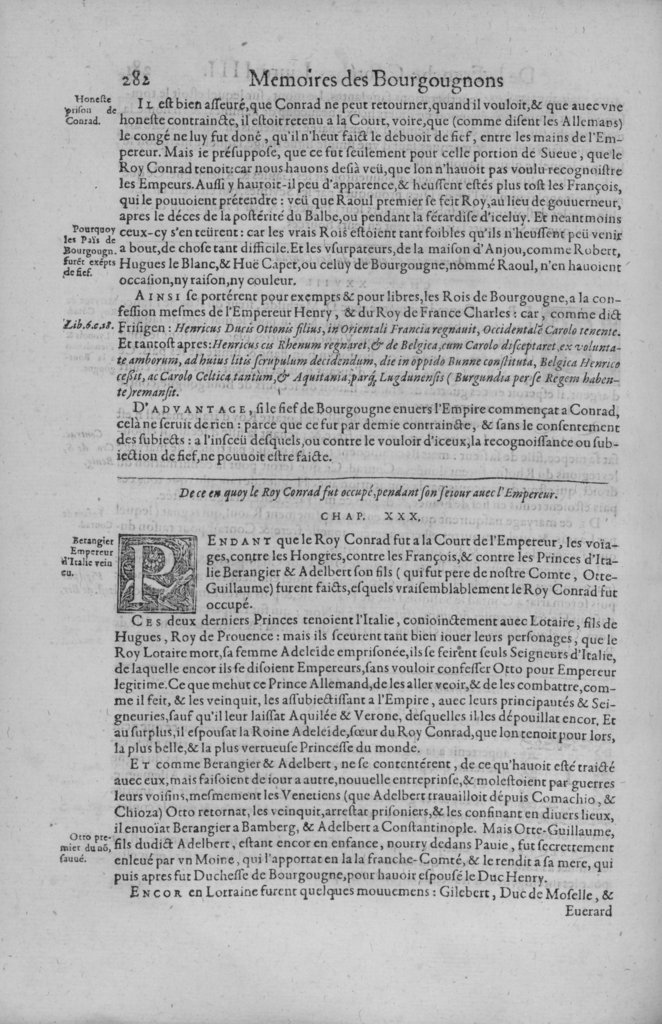 282 Memoires des Bourgougnons
Honeste
prison de
Conrad.
IL est bien asseuré, que Conrad ne peut retourner, quand il vouloit, & que auec vne
honeste contraincte, il estoit retenu a la Court, voire, que (comme disent les Allemans)
le congé ne luy fut doné, qu'il n'heut faict le debuoir de fief, entre les mains de l'Em-
pereur. Mais ie présuppose, que ce fut seulement pour celle portion de Sueue, que le
Roy Conrad tenoit: car nous hauons desià veü, que lon n'hauoit pas voulu recognoistre
les Empeurs. Aussi y hauroit-il peu d'apparence, & heussent estés plus tost les François,
qui le pouuoient prétendre: veü que Raoul premier se feit Roy, au lieu de gouuerneur,
apres le déces de la postérité du Balbe, ou pendant la fétardise d'iceluy. Et neantmoins
Pourquoy
les Païs de
Bourgougn.
furét exépts
de fief.
ceux-cy s'en teürent: car les vrais Rois estoient tant foibles qu'ils n'heussent peü venir
a bout, de chose tant difficile. Et les vsurpateurs, de la maison d'Anjou, comme Robert,
Hugues le Blanc, & Huë Capet, ou celuy de Bourgougne, nommé Raoul, n'en hauoient
occasion, ny raison, ny couleur.
AINSI se portérent pour exempts & pour libres, les Rois de Bourgougne, a la con-
fession mesmes de l'Empereur Henry, & du Roy de France Charles: car, comme dict
Lib.6.c.18.
Frisigen: Henricus Ducis Ottonis filius, in Orientali Francia regnauit, Occidentalẽ Carolo tenente.
Et tantost apres: Henricus cis Rhenum regnaret, & de Belgica, cum Carolo disceptaret, ex volunta-
te amborum, ad huius litis scrupulum decidendum, die in oppido Bunne constituta, Belgica Henrico
cessit, ac Carolo Celtica tantùm, & Aquitania, parq́; Lugdunensis (Burgundia per se Regem haben-
te) remansit.
D'ADVANTAGE, si le fief de Bourgougne enuers l'Empire commençat a Conrad,
celà ne seruit de rien: parce que ce fut par demie contraincte, & sans le consentement
des subiects: a l'insceü desquels, ou contre le vouloir d'iceux, la recognoissance ou sub-
iection de fief, ne pouuoit estre faicte.
De ce en quoy le Roy Conrad fut occupé, pendant son seiour auec l'Empereur.
CHAP. XXX.
Berangier
Empereur
d'Italie vein
cu.
R ENDANT que le Roy Conrad fut a la Court de l'Empereur, les voïa-
ges, contre les Hongres, contre les François, & contre les Princes d'Ita-
lie Berangier & Adelbert son fils (qui fut pere de nostre Comte, Otte-
Guillaume) furent faicts, esquels vraisemblablement le Roy Conrad fut
occupé.
CES deux derniers Princes tenoient l'Italie, conioinctement auec Lotaire, fils de
Hugues, Roy de Prouence: mais ils sceurent tant bien iouer leurs personages, que le
Roy Lotaire mort, sa femme Adeleide emprisonée, ils se feirent seuls Seigneurs d'Italie,
de laquelle encor ils se disoient Empereurs, sans vouloir confesser Otto pour Empereur
legitime. Ce que mehut ce Prince Allemand, de les aller veoir, & de les combattre, com-
me il feit, & les veinquit, les assubiectissant a l'Empire, auec leurs principautés & Sei-
gneuries, sauf qu'il leur laissat Aquilée & Verone, desquelles il les dépouillat encor. Et
au surplus, il espousat la Roine Adeleide, sœur du Roy Conrad, que lon tenoit pour lors,
la plus belle, & la plus vertueuse Princesse du monde.
ET comme Berangier & Adelbert, ne se contentérent, de ce qu'hauoit esté traicté
auec eux, mais faisoient de iour a autre, nouuelle entreprinse, & molestoient par guerres
leurs voisins, mesmement les Venetiens (que Adelbert trauailloit dépuis Comachio, &
Chioza) Otto retornat, les veinquit, arrestat prisoniers, & les confinant en diuers lieux,
il enuoïat Berangier a Bamberg, & Adelbert a Constantinople. Mais Otte-Guillaume,
Otto pre-
mier du nõ,
sauué.
fils dudict Adelbert, estant encor en enfance, nourry dedans Pauie, fut secrettement
enleué par vn Moine, qui l'apportat en la la franche-Comté, & le rendit a sa mere, qui
puis apres fut Duchesse de Bourgougne, pour hauoir espousé le Duc Henry.
ENCOR en Lorraine furent quelques mouuemens: Gilebert, Duc de Moselle, &
Euerard